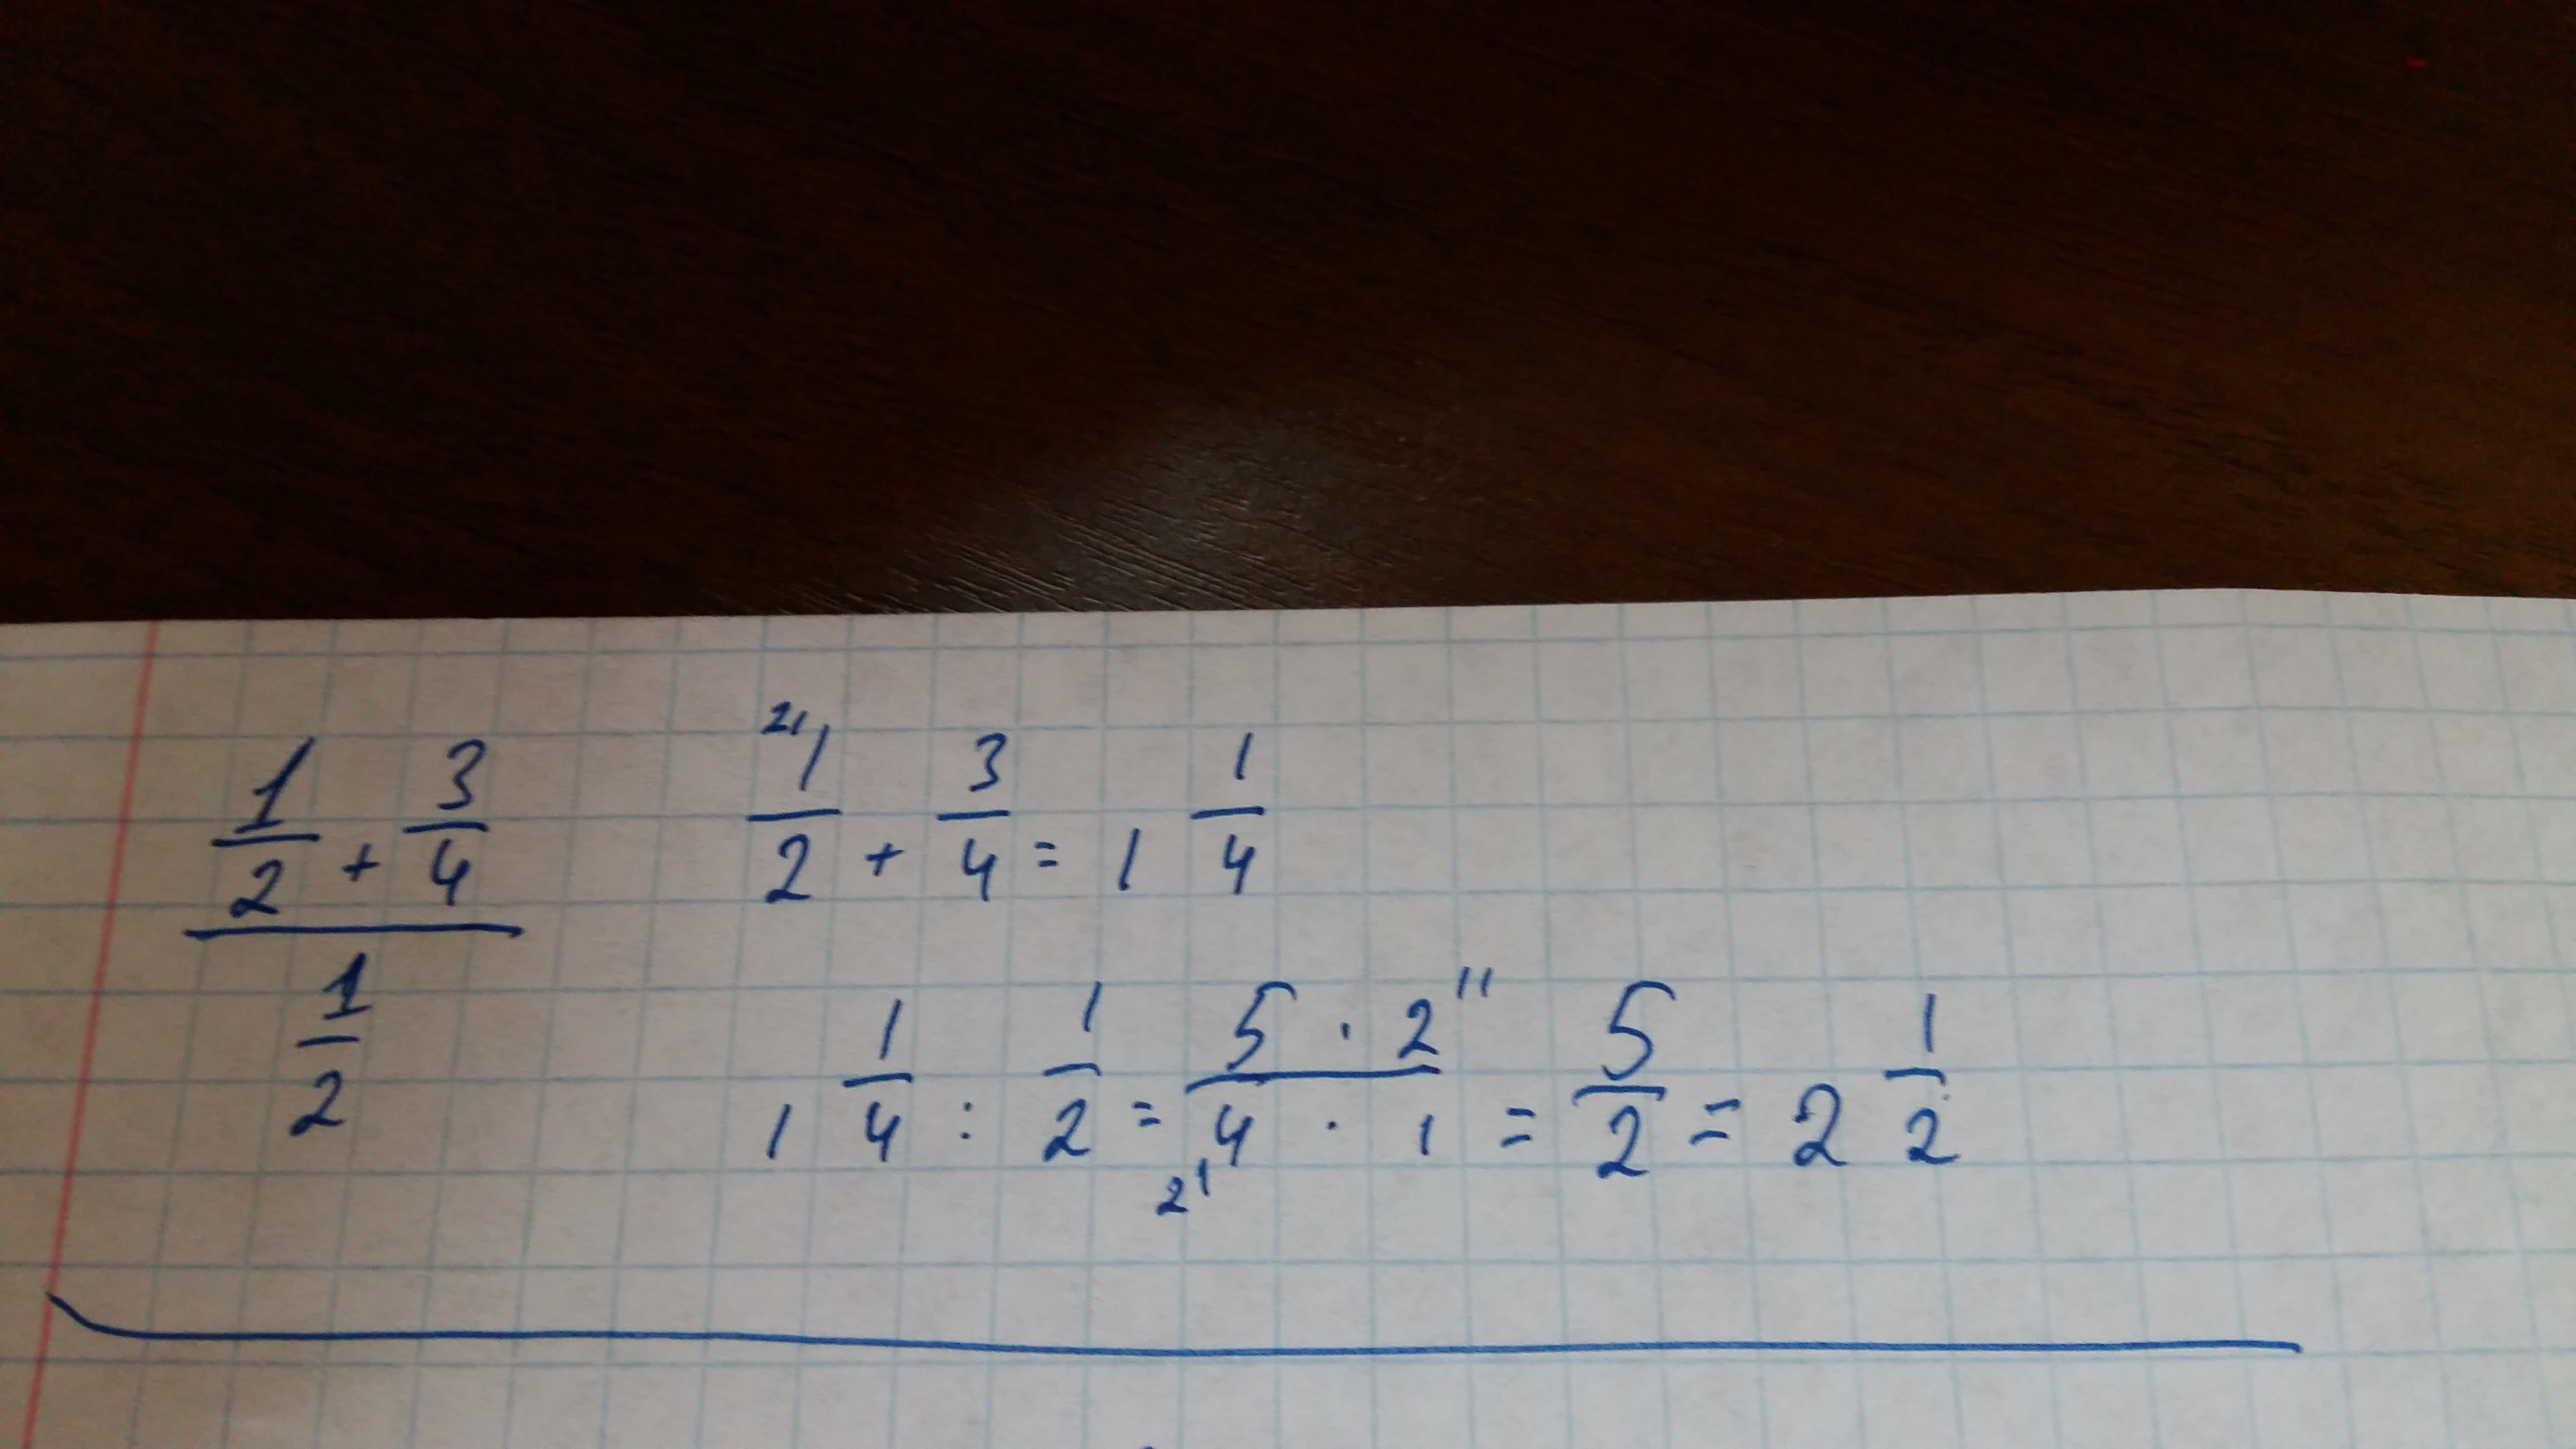 1/2 + 3/4
1/2
2\ 1/2 + 3/4 = 1 1/4
1 1/4 : 1/2 = 5 · 2 \1 / 4 · 1 \2 = 5/2 = 2 1/2